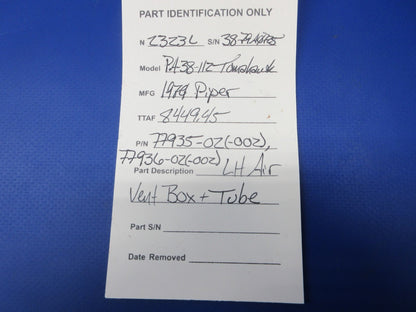 PART IDENTIFICATION ONLY
N 2323L S/N 38-79A0985
Model PA38-112 Tomahawk
MFG 1979 Piper
TTAF 8449.45
P/N 77935-02(-002),
77936-02(-002)
Part Description LH Air
Vent Box + Tube
Part S/N
Date Removed